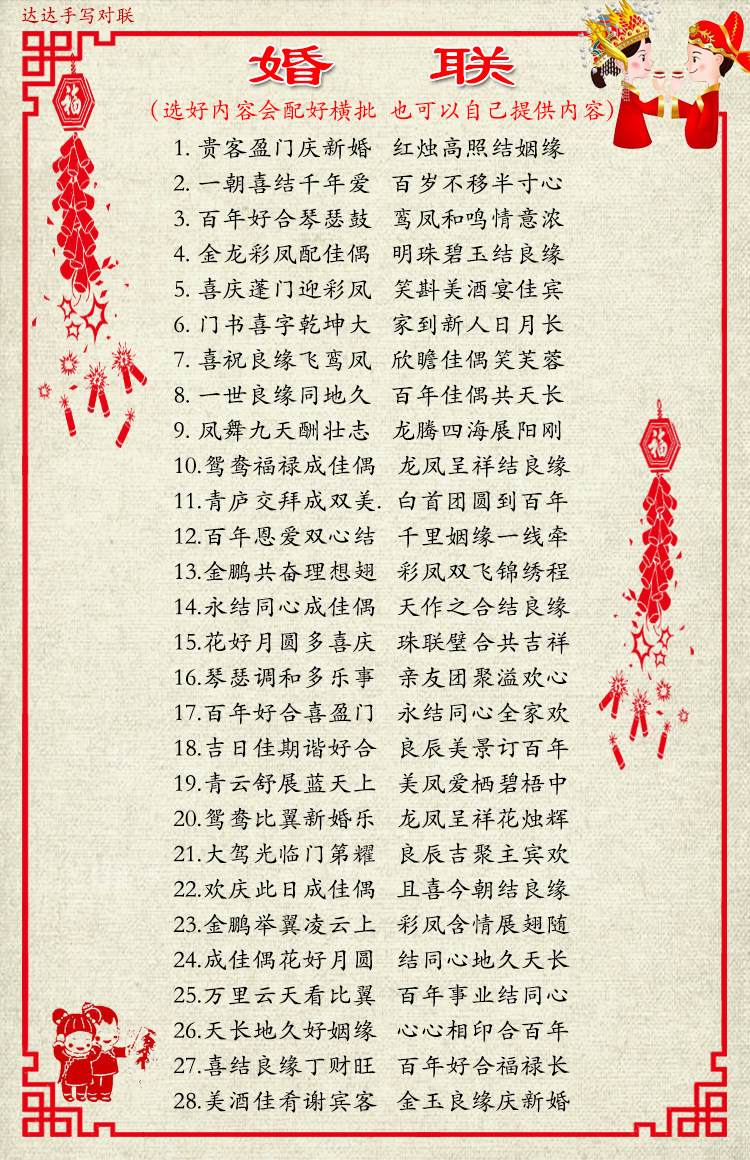 达达手写对联
婚 联
(选好内容会配好横批 也可以自己提供内容)
1. 贵客盈门庆新婚 红烛高照结姻缘
2. 一朝喜结千年爱 百岁不移半寸心
3. 百年好合琴瑟鼓 鸾凤和鸣情意浓
4. 金龙彩凤配佳偶 明珠碧玉结良缘
5. 喜庆蓬门迎彩凤 笑斟美酒宴佳宾
6. 门书喜字乾坤大 家到新人日月长
7. 喜祝良缘飞鸾凤 欣瞻佳偶笑芙蓉
8. 一世良缘同地久 百年佳偶共天长
9. 凤舞九天酬壮志 龙腾四海展阳刚
10.鸳鸯福禄成佳偶 龙凤呈祥结良缘
11.青庐交拜成双美. 白首团圆到百年
12.百年恩爱双心结 千里姻缘一线牵
13.金鹏共奋理想翅 彩凤双飞锦绣程
14.永结同心成佳偶 天作之合结良缘
15.花好月圆多喜庆 珠联璧合共吉祥
16.琴瑟调和多乐事 亲友团聚溢欢心
17.百年好合喜盈门 永结同心全家欢
18.吉日佳期谐好合 良辰美景订百年
19.青云舒展蓝天上 美凤爱栖碧梧中
20.鸳鸯比翼新婚乐 龙凤呈祥花烛辉
21.大驾光临门第耀 良辰吉聚主宾欢
22.欢庆此日成佳偶 且喜今朝结良缘
23.金鹏举翼凌云上 彩凤含情展翅随
24.成佳偶花好月圆 结同心地久天长
25.万里云天看比翼 百年事业结同心
26.天长地久好姻缘 心心相印合百年
27.喜结良缘丁财旺 百年好合福禄长
28.美酒佳肴谢宾客 金玉良缘庆新婚
福
福